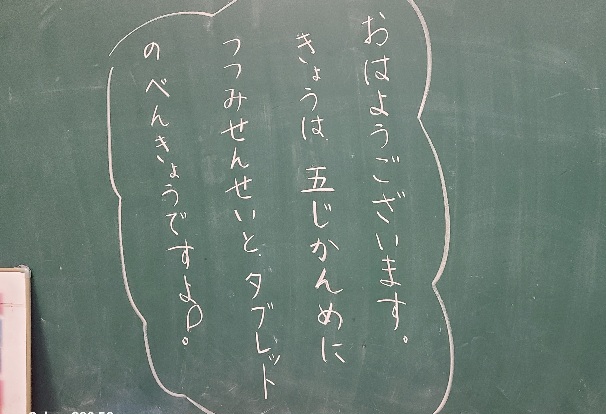 おはようございます。
きょうは、五じかんめに
つつみせんせいと、タブレット
のべんきょうですよ。